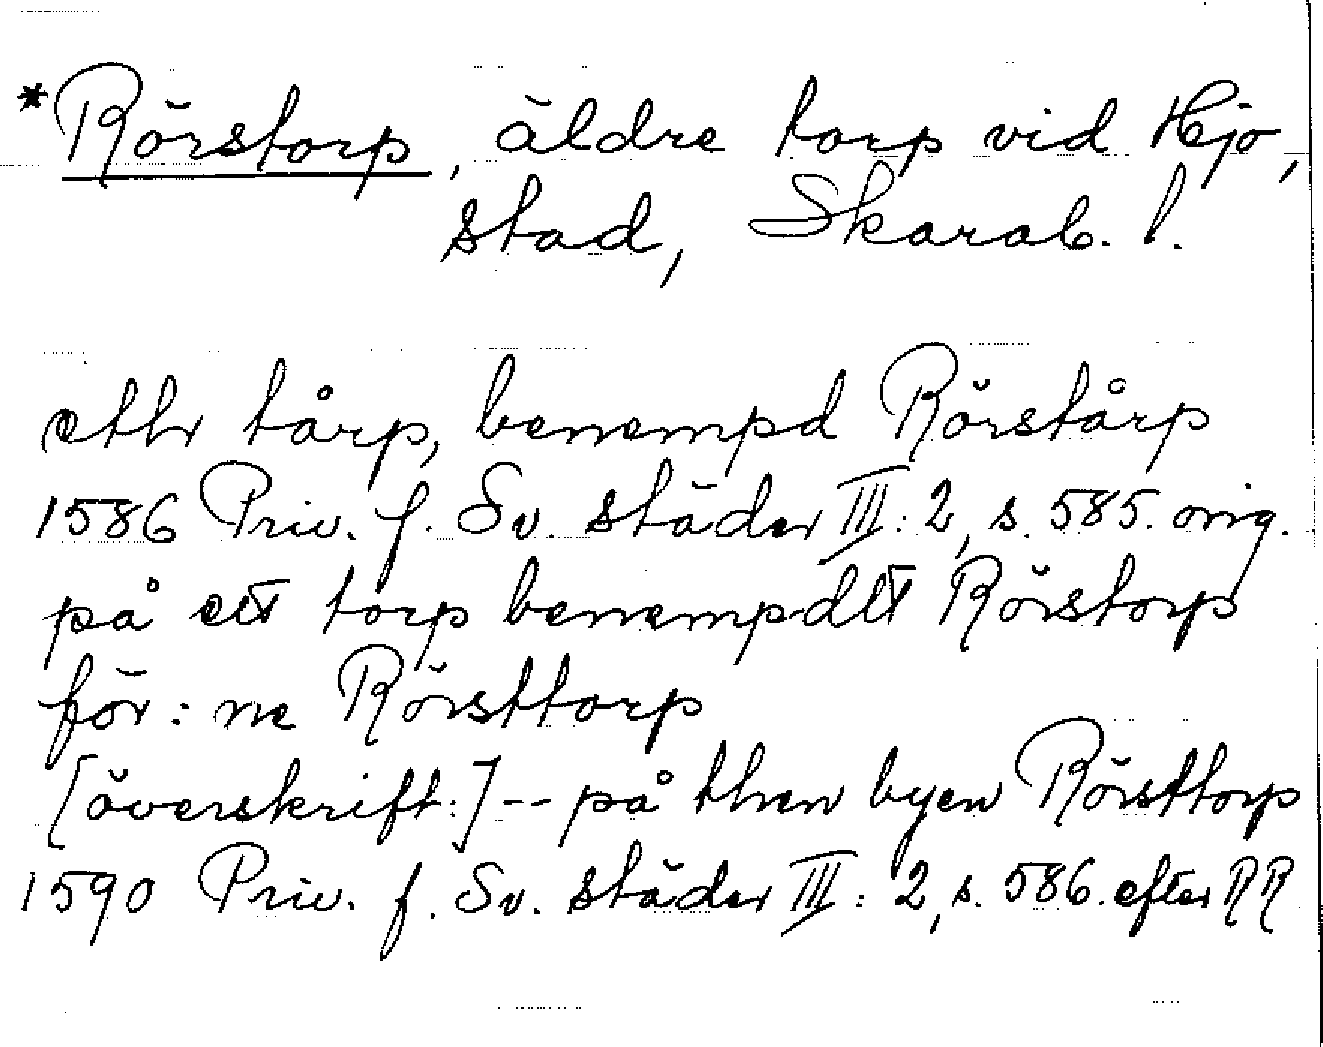 *Rörstorp, äldre torp vid Hjo,
stad, Skarab. l.
etthr tårp, benempd Rörstårp
1586 Priv. f. Sv. städer III: 2, s. 585. orig.
på ett torp benempdtt Rörstorp
för: ne Rörsttorp
[överskrift:] -- på then byen Rörsttorp
1590 Priv. f. Sv. städer III: 2, s. 586. efter RR